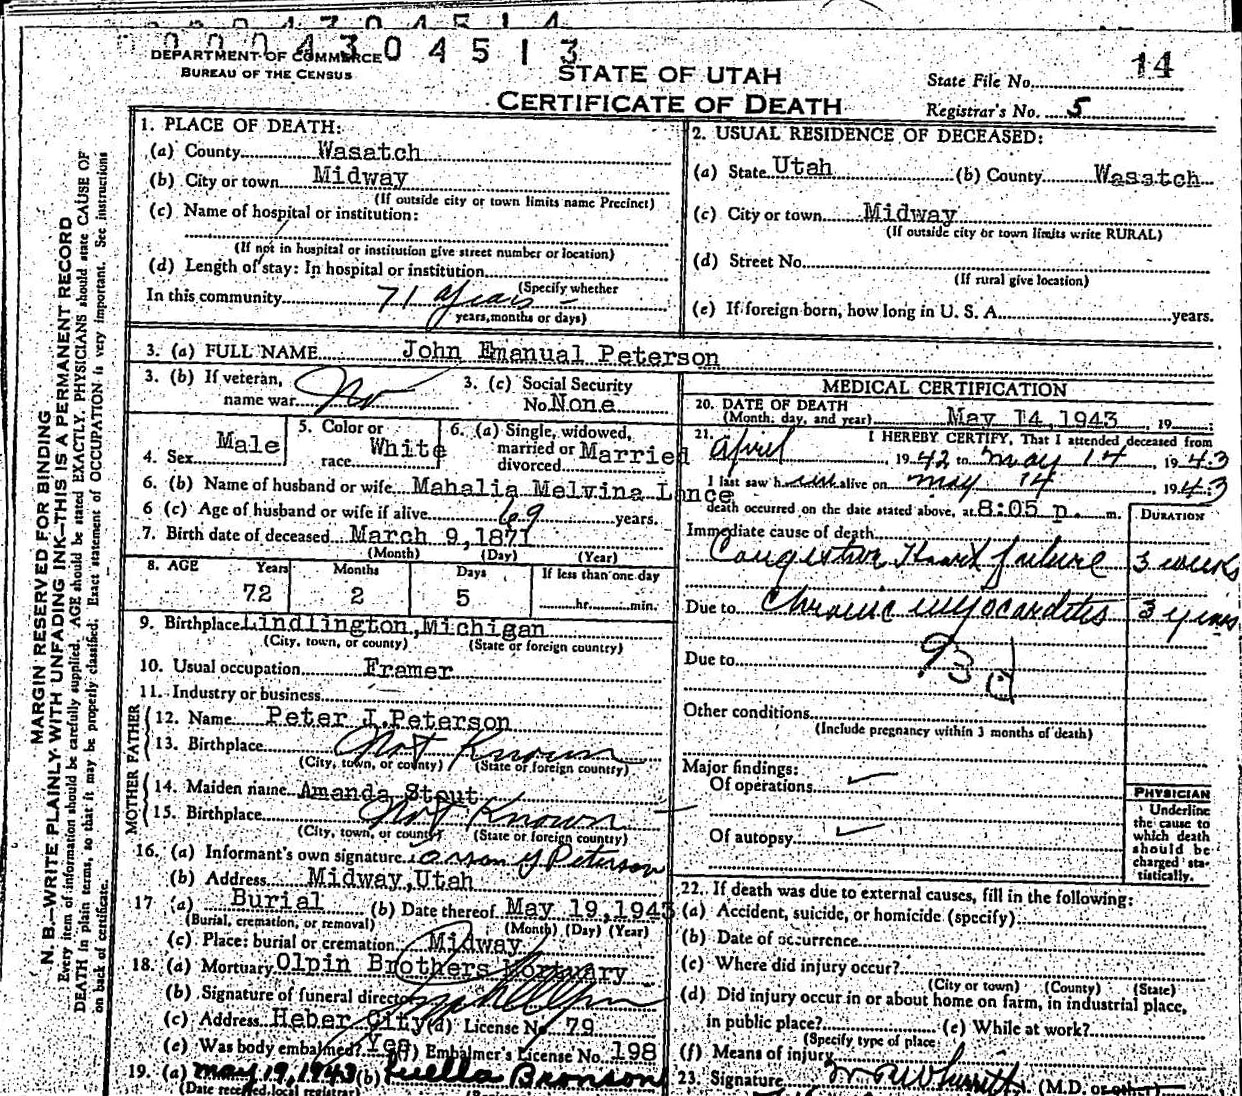 0004304513
DEPARTMENT OF COMMERCE
BUREAU OF THE CENSUS
STATE OF UTAH
CERTIFICATE OF DEATH
14
State File No.
Registrar's No. 5
MARGIN RESERVED FOR BINDING
N. B.—WRITE PLAINLY WITH UNFADING INK—THIS IS A PERMANENT RECORD
Every item of information should be carefully supplied. AGE should be stated EXACTLY. PHYSICIANS should state CAUSE OF
DEATH in plain terms, so that it may be properly classified. Exact statement of OCCUPATION is very important. See instructions
on back of certificate.
1. PLACE OF DEATH:
(a) County Wasatch
(b) City or town Midway
(If outside city or town limits name Precinct)
(c) Name of hospital or institution:
(If not in hospital or institution give street number or location)
(d) Length of stay: In hospital or institution
(Specify whether
In this community 71 years
years, months or days)
2. USUAL RESIDENCE OF DECEASED:
(a) State Utah (b) County Wasatch
(c) City or town Midway
(If outside city or town limits write RURAL)
(d) Street No.
(If rural give location)
(e) If foreign born, how long in U. S. A. years.
3. (a) FULL NAME John Emanual Peterson
3. (b) If veteran,
name war No
3. (c) Social Security
No. None
4. Sex Male
5. Color or
race White
6. (a) Single, widowed,
married or
divorced Married
6. (b) Name of husband or wife Mahalia Melvina Lance
6 (c) Age of husband or wife if alive 69 years.
7. Birth date of deceased March 9, 1871
(Month) (Day) (Year)
8. AGE Years Months Days If less than one day
72 2 5 hr. min.
9. Birthplace Lindlington, Michigan
(City, town, or county) (State or foreign country)
10. Usual occupation Framer
11. Industry or business
FATHER
12. Name Peter J. Peterson
13. Birthplace Not Known
(City, town, or county) (State or foreign country)
MOTHER
14. Maiden name Amanda Stout
15. Birthplace Not Known
(City, town, or county) (State or foreign country)
16. (a) Informant's own signature Peterson
(b) Address Midway, Utah
17 (a) Burial (b) Date thereof May 19, 1943
(Burial, cremation, or removal) (Month) (Day) (Year)
(c) Place: burial or cremation Midway
18. (a) Mortuary Olpin Brothers Mortuary
(b) Signature of funeral director
(c) Address Heber City (d) License No. 79
(e) Was body embalmed? Yes (f) Embalmer's License No. 198
19. (a) May 19, 1943 (b) Luella Bronson
(Date received local registrar)
MEDICAL CERTIFICATION
20. DATE OF DEATH
(Month, day, and year) May 14, 1943, 19
21. I HEREBY CERTIFY, That I attended deceased from
April, 1942 to May 14, 1943
I last saw him alive on May 14, 1943
death occurred on the date stated above, at 8:05 p. m.
DURATION
Immediate cause of death
Congestive Heart failure 3 weeks
Due to Chronic myocarditis 3 years
Due to 93d
Other conditions
(Include pregnancy within 3 months of death)
Major findings:
Of operations
Of autopsy
PHYSICIAN
Underline
the cause to
which death
should be
charged sta-
tistically.
22. If death was due to external causes, fill in the following:
(a) Accident, suicide, or homicide (specify)
(b) Date of occurrence
(c) Where did injury occur?
(City or town) (County) (State)
(d) Did injury occur in or about home on farm, in industrial place,
in public place? (e) While at work?
(Specify type of place)
(f) Means of injury
23. Signature (M.D. or other)